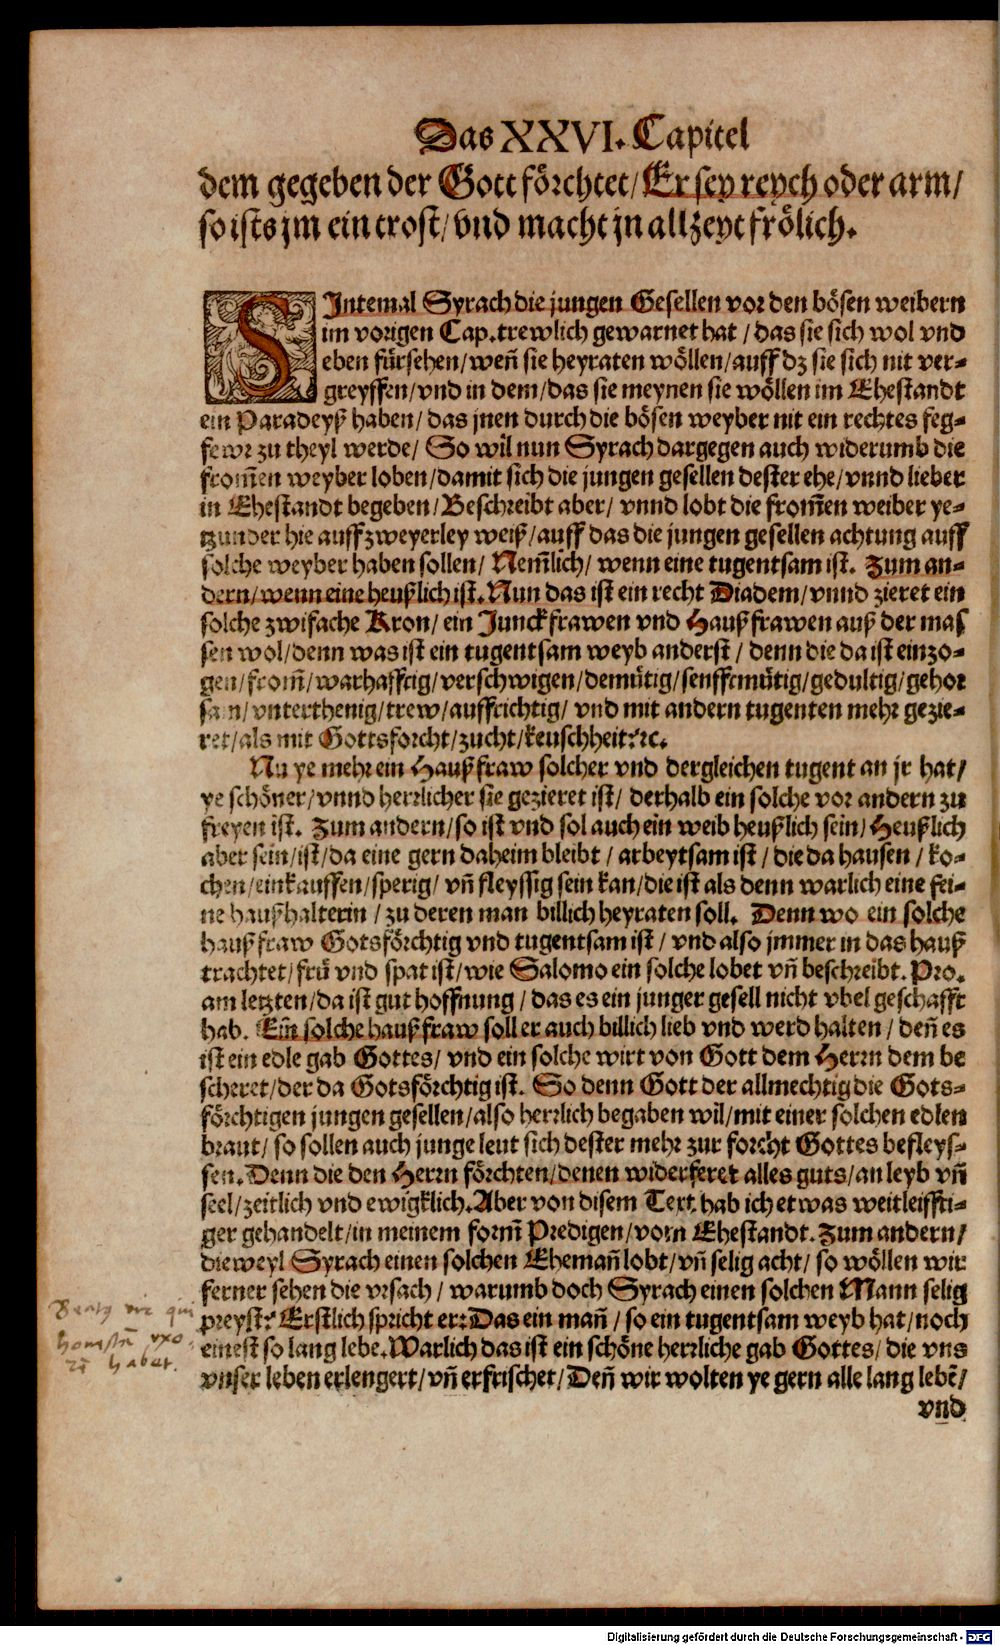 Das XXVI. Capitel
dem gegeben der Gott förchtet/ Er sey reych oder arm/
so ists jm ein trost/ vnd macht jn allzeyt frölich.
SIntemal Syrach die jungen Gesellen vor den bösen weibern
im vorigen Cap. trewlich gewarnet hat / das sie sich wol vnd
eben fürsehen/ weñ sie heyraten wöllen/ auff dz sie sich nit ver⸗
greyffen/ vnd in dem/ das sie meynen sie wöllen im Ehestandt
ein Paradeyß haben/ das jnen durch die bösen weyber nit ein rechtes feg⸗
fewr zu theyl werde/ So wil nun Syrach dargegen auch widerumb die
from̃en weyber loben/ damit sich die jungen gesellen dester ehe/ vnnd lieber
in Ehestandt begeben/ Beschreibt aber/ vnnd lobt die from̃en weiber ye⸗
tzunder hie auff zweyerley weiß/ auff das die jungen gesellen achtung auff
solche weyber haben sollen/ Nem̃lich/ wenn eine tugentsam ist. Zum an⸗
dern/ wenn eine heußlich ist. Nun das ist ein recht Diadem/ vnnd zieret ein
solche zwifache Kron/ ein Junckfrawen vnd Haußfrawen auß der mas
sen wol/ denn was ist ein tugentsam weyb anderst / denn die da ist einzo⸗
gen/ from̃/ warhafftig/ verschwigen/ demütig/ senfftmütig/ gedultig/ gehor
sam/ vnterthenig/ trew/ auffrichtig/ vnd mit andern tugenten mehr gezie⸗
ret/ als mit Gottsforcht/ zucht/ keuschheit ꝛc.
Nu ye mehr ein Haußfraw solcher vnd dergleichen tugent an jr hat/
ye schöner/ vnnd herrlicher sie gezieret ist/ derhalb ein solche vor andern zu
freyen ist. Zum andern/ so ist vnd sol auch ein weib heußlich sein/ Heußlich
aber sein/ ist/ da eine gern daheim bleibt / arbeytsam ist / die da hausen / ko⸗
chen/ einkauffen/ sperig/ vñ fleyssig sein kan/ die ist als denn warlich eine fei⸗
ne haußhalterin / zu deren man billich heyraten soll. Denn wo ein solche
haußfraw Gotsförchtig vnd tugentsam ist / vnd also jmmer in das hauß
trachtet/ frü vnd spat ist/ wie Salomo ein solche lobet vñ beschreibt. Pro.
am letzten/ da ist gut hoffnung / das es ein junger gesell nicht vbel geschafft
hab. Ein solche haußfraw soll er auch billich lieb vnd werd halten / deñ es
ist ein edle gab Gottes/ vnd ein solche wirt von Gott dem Herrn dem be
scheret/ der da Gotsförchtig ist. So denn Gott der allmechtig die Gots⸗
förchtigen jungen gesellen/ also herrlich begaben wil/ mit einer solchen edlen
braut/ so sollen auch junge leut sich dester mehr zur forcht Gottes befleys⸗
sen. Denn die den Herrn förchten/ denen widerferet alles guts/ an leyb vñ
seel/ zeitlich vnd ewigklich. Aber von disem Text hab ich etwas weitleiffti⸗
ger gehandelt/ in meinem form̃ Predigen/ vom Ehestandt. Zum andern/
dieweyl Syrach einen solchen Ehemañ lobt/ vñ selig acht/ so wöllen wir
ferner sehen die vrsach / warumb doch Syrach einen solchen Mann selig
preyst? Erstlich spricht er: Das ein mañ / so ein tugentsam weyb hat/ noch
einest so lang lebe. Warlich das ist ein schöne herrliche gab Gottes/ die vns
vnser leben erlengert/ vñ erfrischet/ Deñ wir wolten ye gern alle lang lebẽ/
vnd
vir qui
habet.
Digitalisierung gefördert durch die Deutsche Forschungsgemeinschaft - DFG